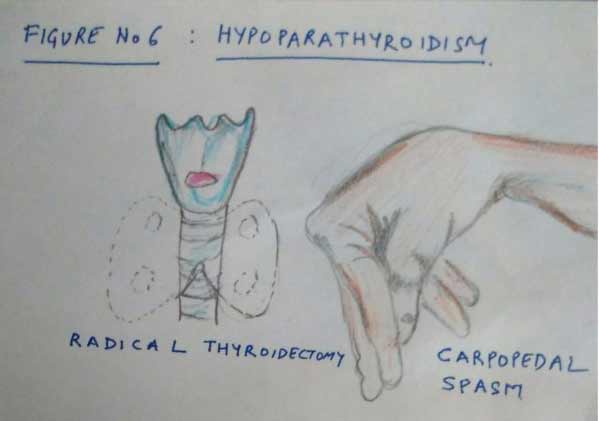 FIGURE No 6 : HYPOPARATHYROIDISM.
RADICAL THYROIDECTOMY
CARPOPEDAL
SPASM